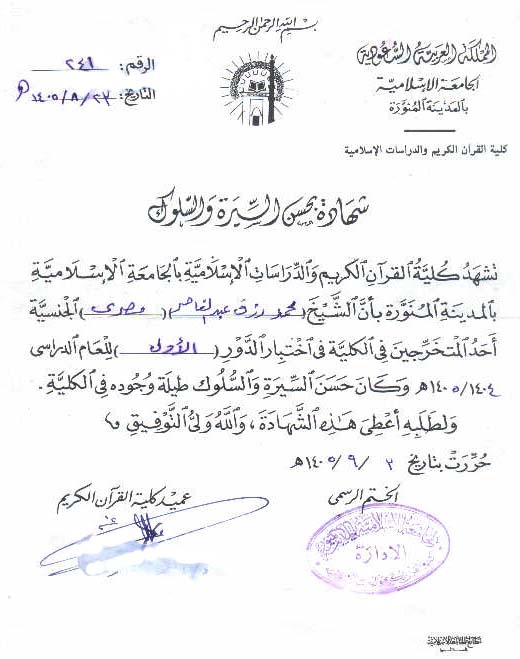 بسم الله الرحمن الرحيم
المملكة العربية السعودية
الجامعة الإسلامية
بالمدينة المنورة
كلية القرآن الكريم والدراسات الإسلامية
الرقم: ٢٤١
التاريخ: ٢٣ / ٨ / ١٤٠٥ هـ
شهادة بحسن السيرة والسلوك
تشهد كلية القرآن الكريم والدراسات الإسلامية بالجامعة الإسلامية
بالمدينة المنورة بأن الشيخ (محمد رزق عبد الناصر) (مصري) الجنسية
أحد المتخرجين في الكلية في اختبار الدور (الأول) للعام الدراسي
١٤٠٥/١٤٠٤ هـ وكان حسن السيرة والسلوك طيلة وجوده في الكلية.
ولطلبه أعطى هذه الشهادة، والله ولي التوفيق
حررت بتاريخ ٢ / ٩ / ١٤٠٥ هـ
الختم الرسمي
عميد كلية القرآن الكريم
الإدارة